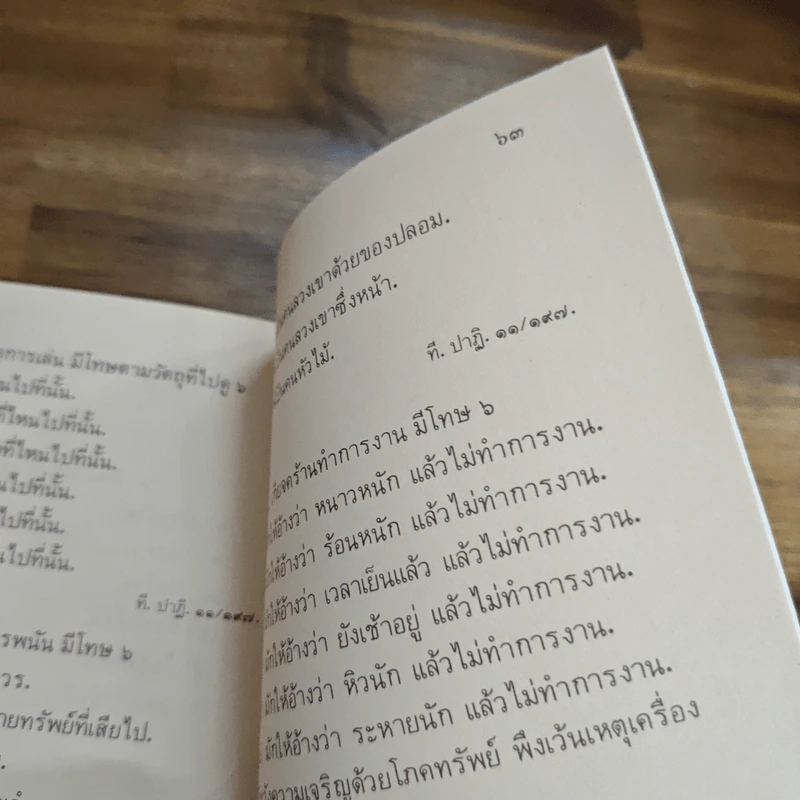 การเล่น มีโทษตามวัตถุที่ไปดู ๖
นไปที่นั้น.
ที่ไหนไปที่นั้น.
ที่ไหนไปที่นั้น.
นไปที่นั้น.
ไปที่นั้น.
นไปที่นั้น.
ที. ปาฏิ. ๑๑/๑๙๗.
รพนัน มีโทษ ๖
วร.
ายทรัพย์ที่เสียไป.
๖๓
คนลวงเขาด้วยของปลอม.
คนลวงเขาซึ่งหน้า.
คนหัวไม้.
ที. ปาฏิ. ๑๑/๑๙๗.
เกียจคร้านทำการงาน มีโทษ ๖
ให้อ้างว่า หนาวหนัก แล้วไม่ทำการงาน.
ให้อ้างว่า ร้อนหนัก แล้วไม่ทำการงาน.
มักให้อ้างว่า เวลาเย็นแล้ว แล้วไม่ทำการงาน.
มักให้อ้างว่า ยังเช้าอยู่ แล้วไม่ทำการงาน.
มักให้อ้างว่า หิวนัก แล้วไม่ทำการงาน.
มักให้อ้างว่า ระหายนัก แล้วไม่ทำการงาน.
ความเจริญด้วยโภคทรัพย์ พึงเว้นเหตุเครื่อง